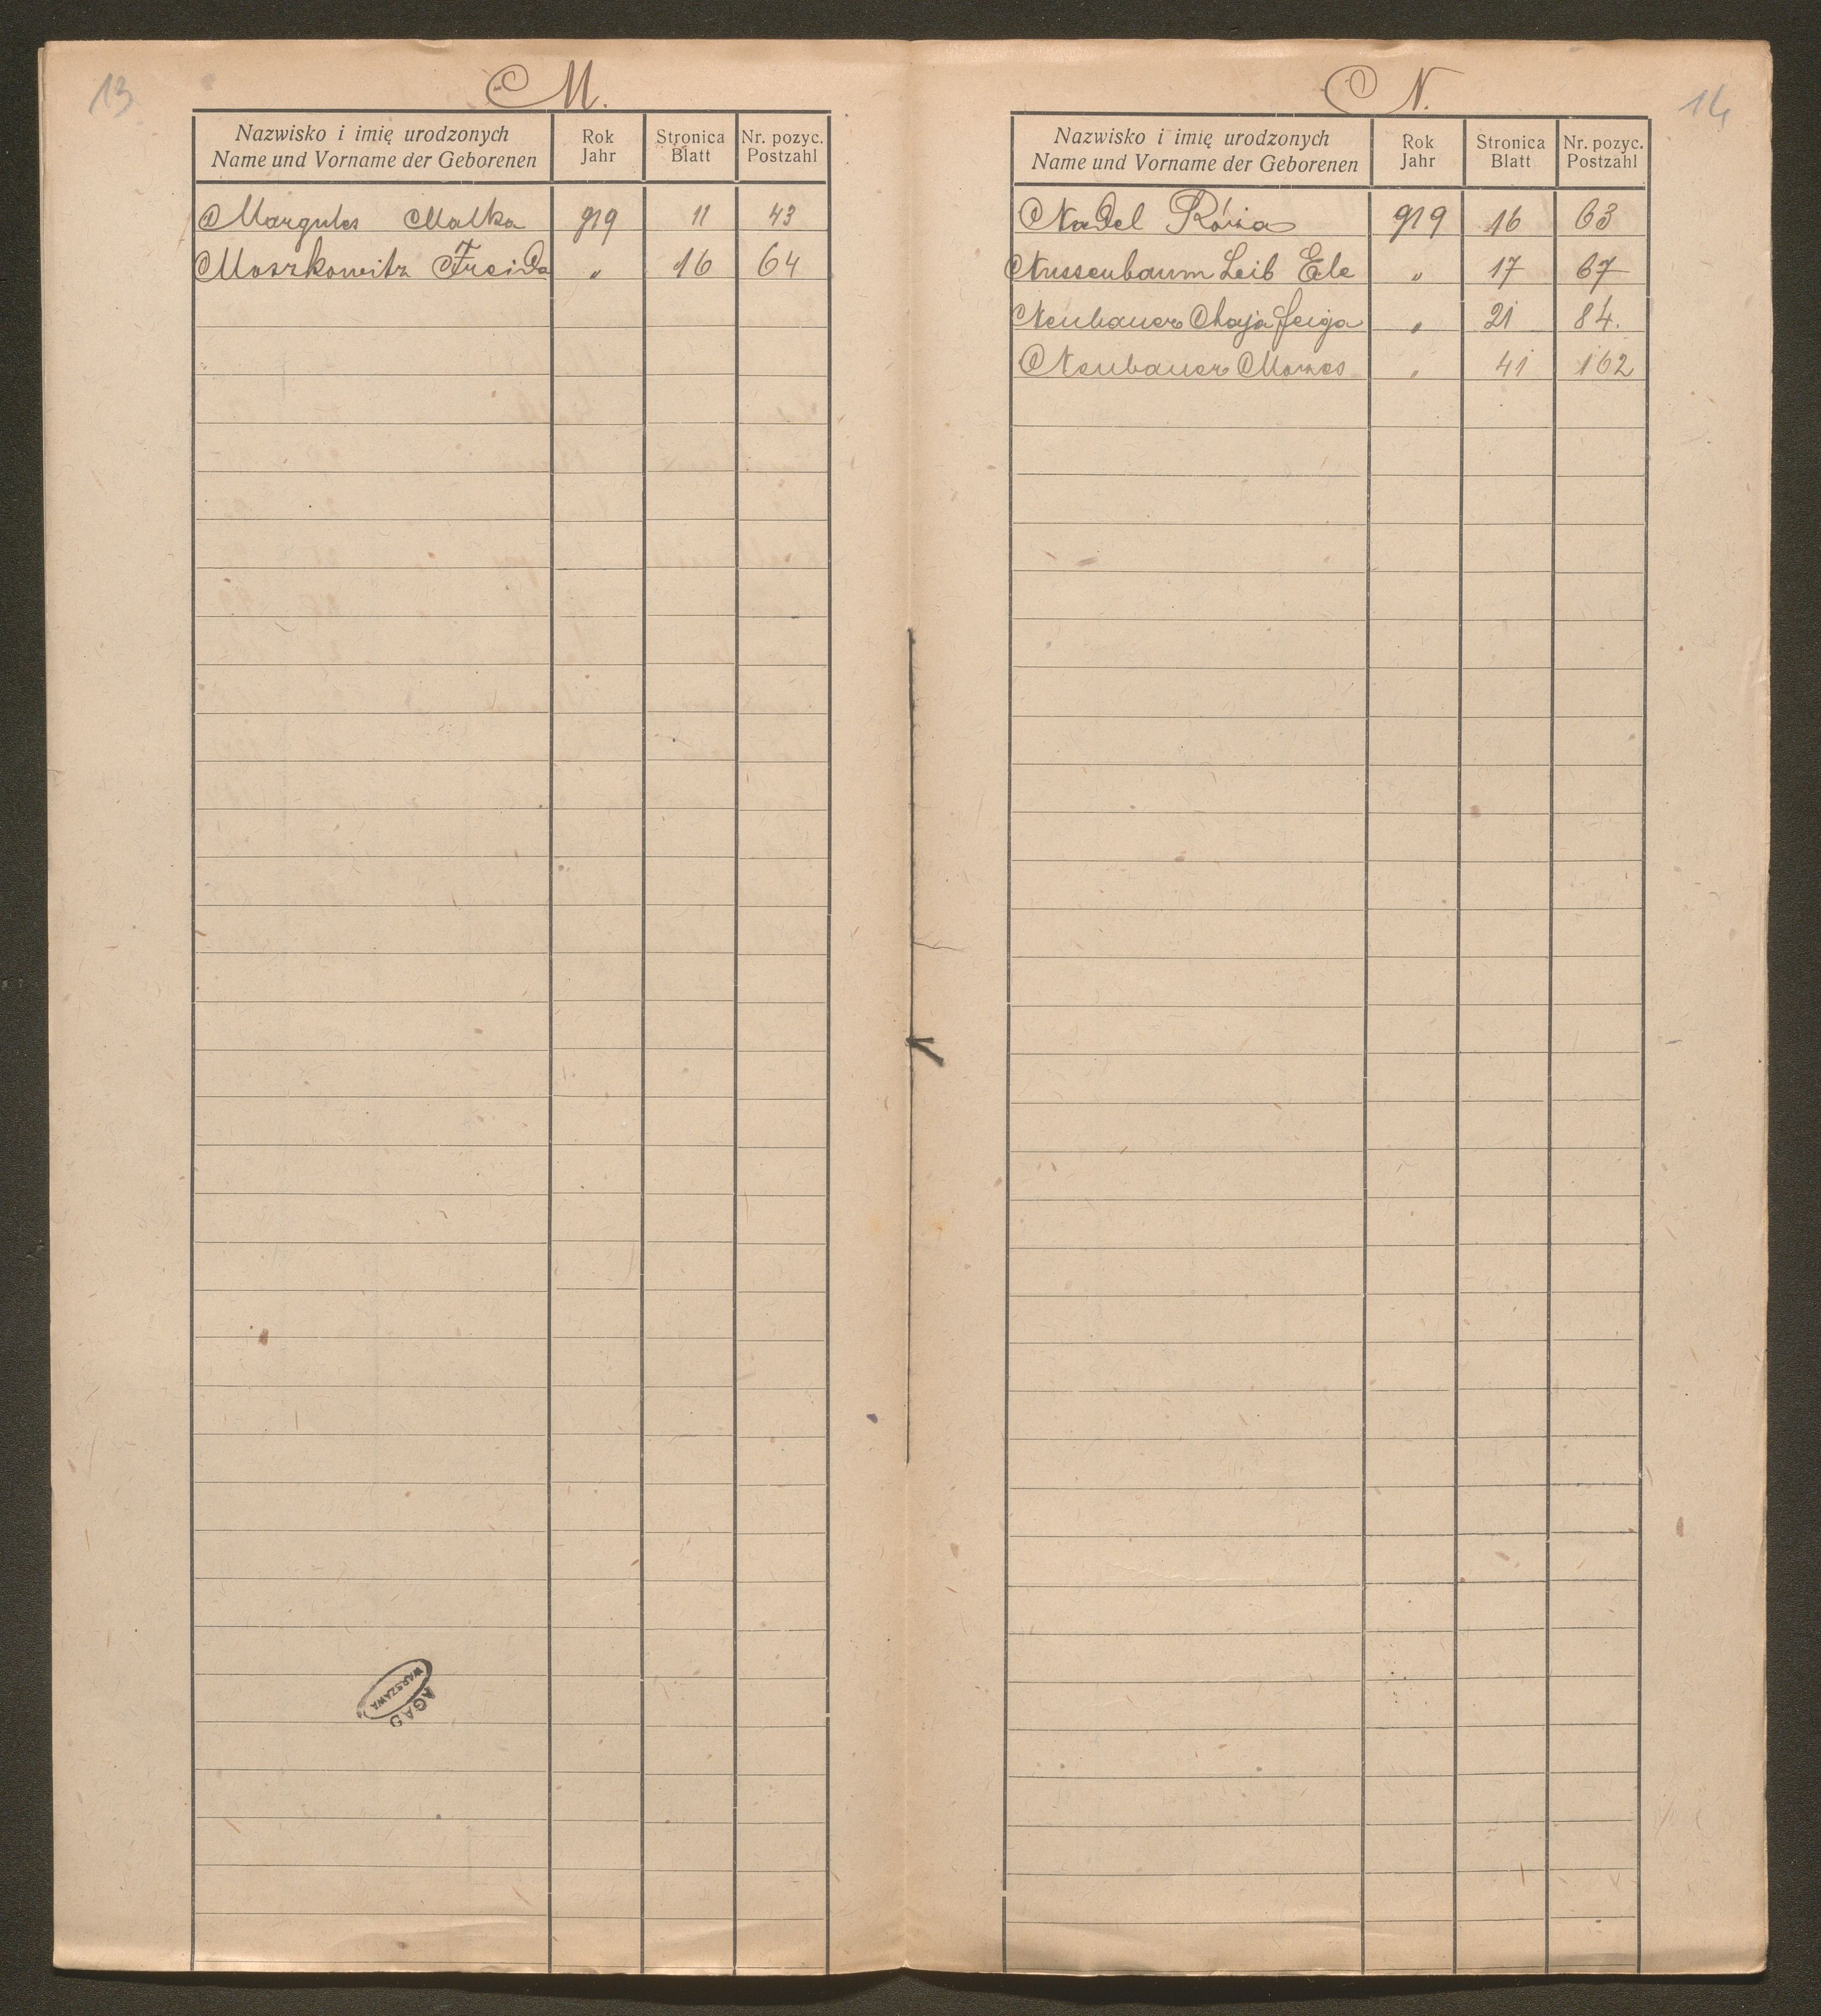 13
M.
Nazwisko i imię urodzonych
Name und Vorname der Geborenen
Rok
Jahr
Stronica
Blatt
Nr. pozyc.
Postzahl
Margules Malka 919 11 43
Moszkowitz Freida " 16 64
WARSZAWA
AGAD
14
N.
Nazwisko i imię urodzonych
Name und Vorname der Geborenen
Rok
Jahr
Stronica
Blatt
Nr. pozyc.
Postzahl
Nadel Róża 919 16 63
Nussenbaum Leib Ele " 17 67
Neubauer Chaja feiga " 21 84.
Neubauer Mozes " 41 162